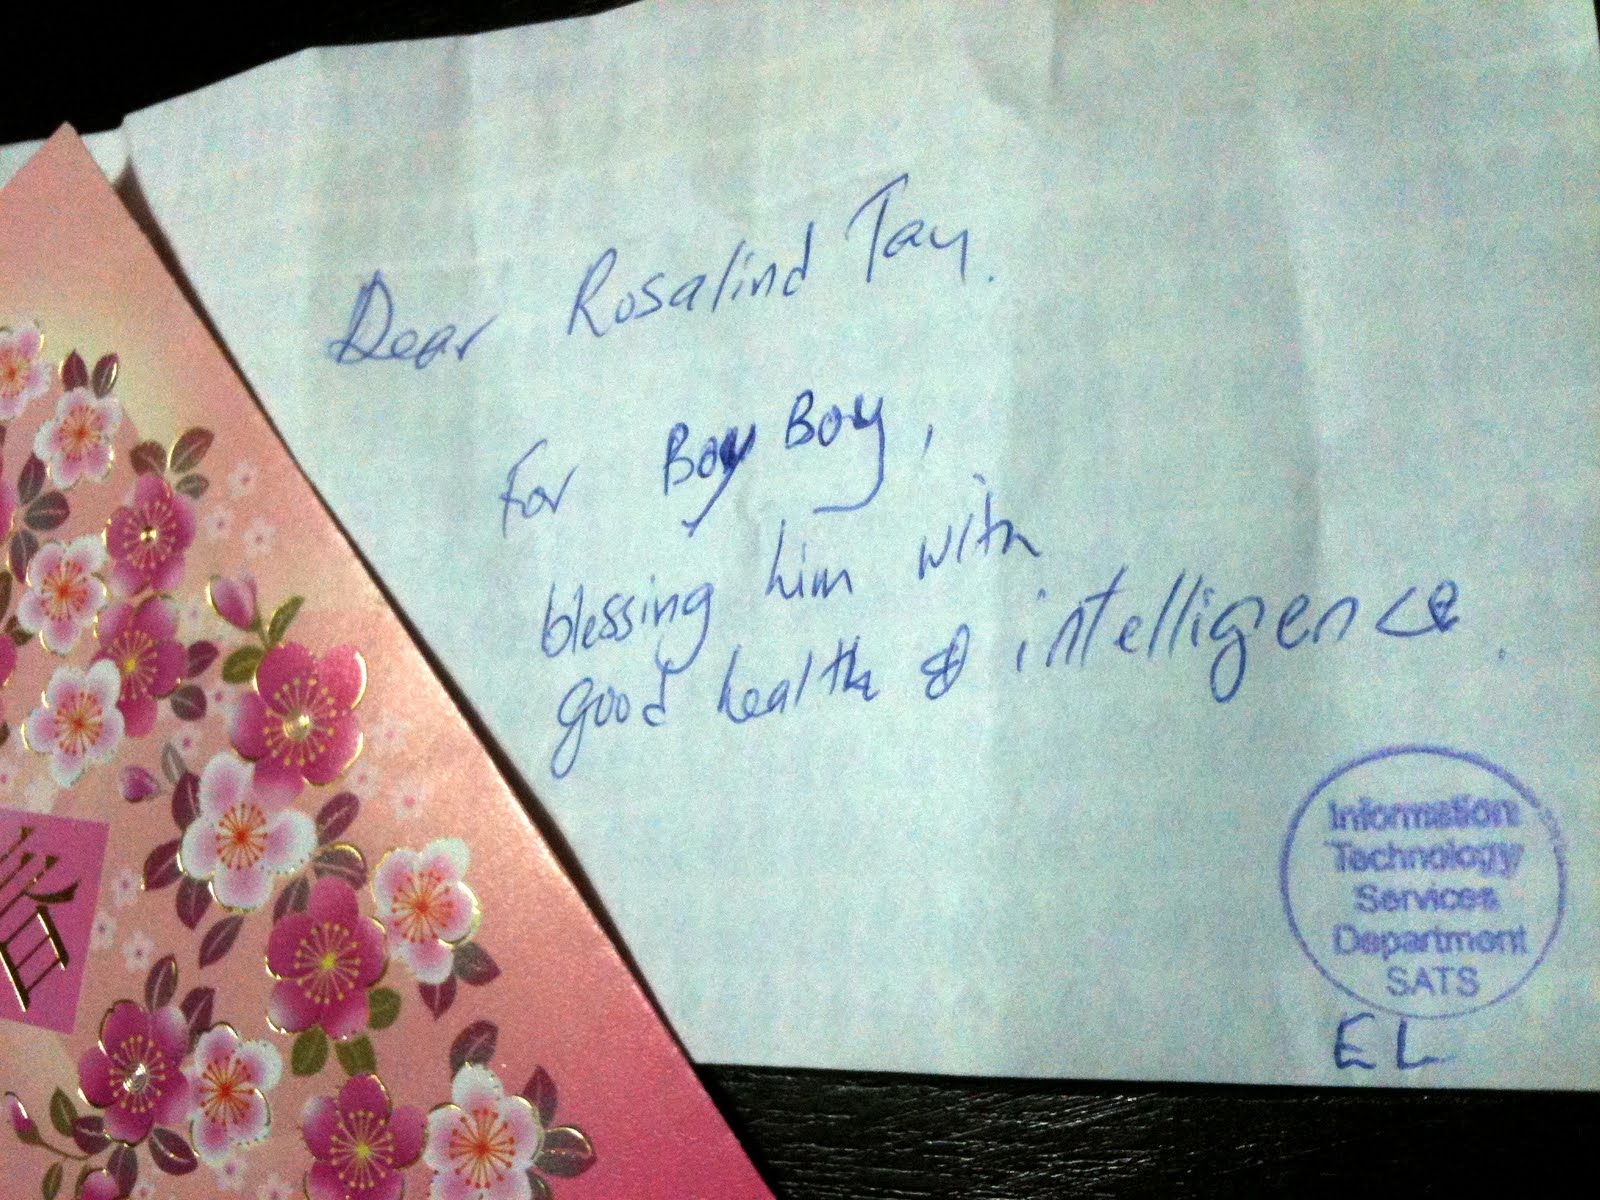 Dear Rosalind Tay.
For Boy Boy,
blessing him with
good health & intelligence.
Information
Technology
Services
Department
SATS
EL